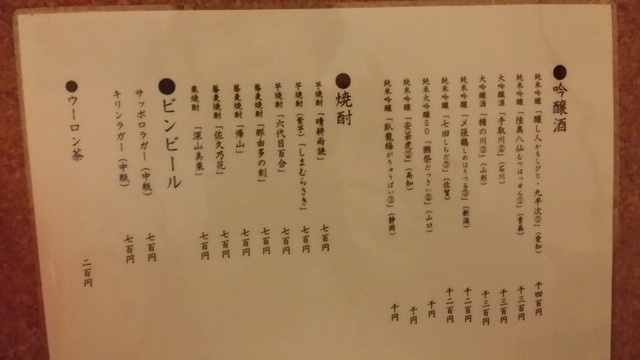 ●吟醸酒
純米吟醸「醸し人かもしびと・九平次①」(愛知) 千四百円
純米吟醸「陸奥八仙むつはっせん①」(青森) 千三百円
大吟醸酒「手取川②」(石川) 千三百円
大吟醸酒「楯の川③」(山形) 千三百円
純米吟醸「〆張鶴しめはりつる③」(新潟) 千二百円
純米吟醸「七田しちだ③」(佐賀) 千二百円
純米大吟醸50「獺祭だっさい②」(山口) 千円
純米吟醸「安芸虎④」(高知) 千円
純米吟醸「臥龍梅がりゅうばい③」(静岡) 千円
●焼酎
芋焼酎「晴耕雨読」 七百円
芋焼酎(紫芋)「しまむらさき」 七百円
芋焼酎「六代目百合」 七百円
蕎麦焼酎「那由多の刻」 七百円
蕎麦焼酎「帰山」 七百円
蕎麦焼酎「佐久乃花」 七百円
栗焼酎「深山美栗」 七百円
●ビンビール
サッポロラガー(中瓶) 七百円
キリンラガー(中瓶) 七百円
●ウーロン茶 二百円